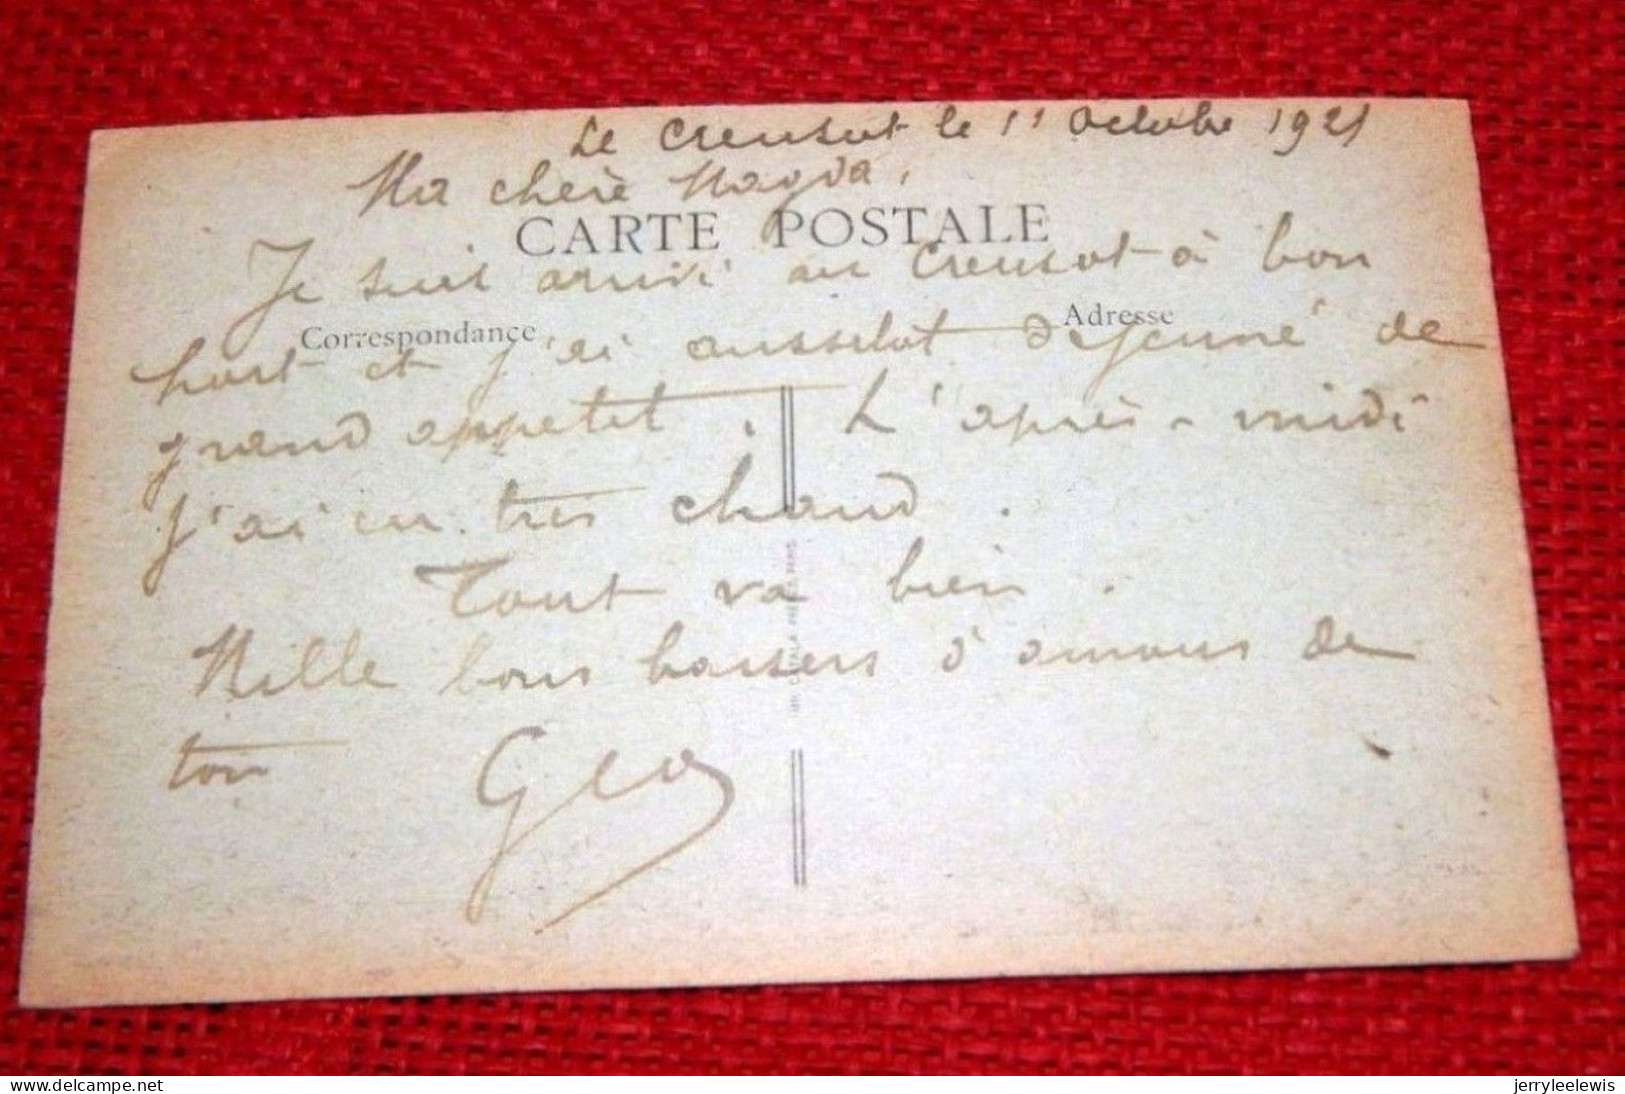 Le Creusot le 11 Octobre 1921
Ma chère Magda,
CARTE POSTALE
Je suis arrivé au Creusot à bon
Correspondance
Adresse
port et j'ai aussitot déjeuné de
grand appetit. L'après-midi
j'ai eu très chaud.
Tout va bien.
Mille bons baisers d'amour de
ton Geo
jerryleelewis
Delcampe.net